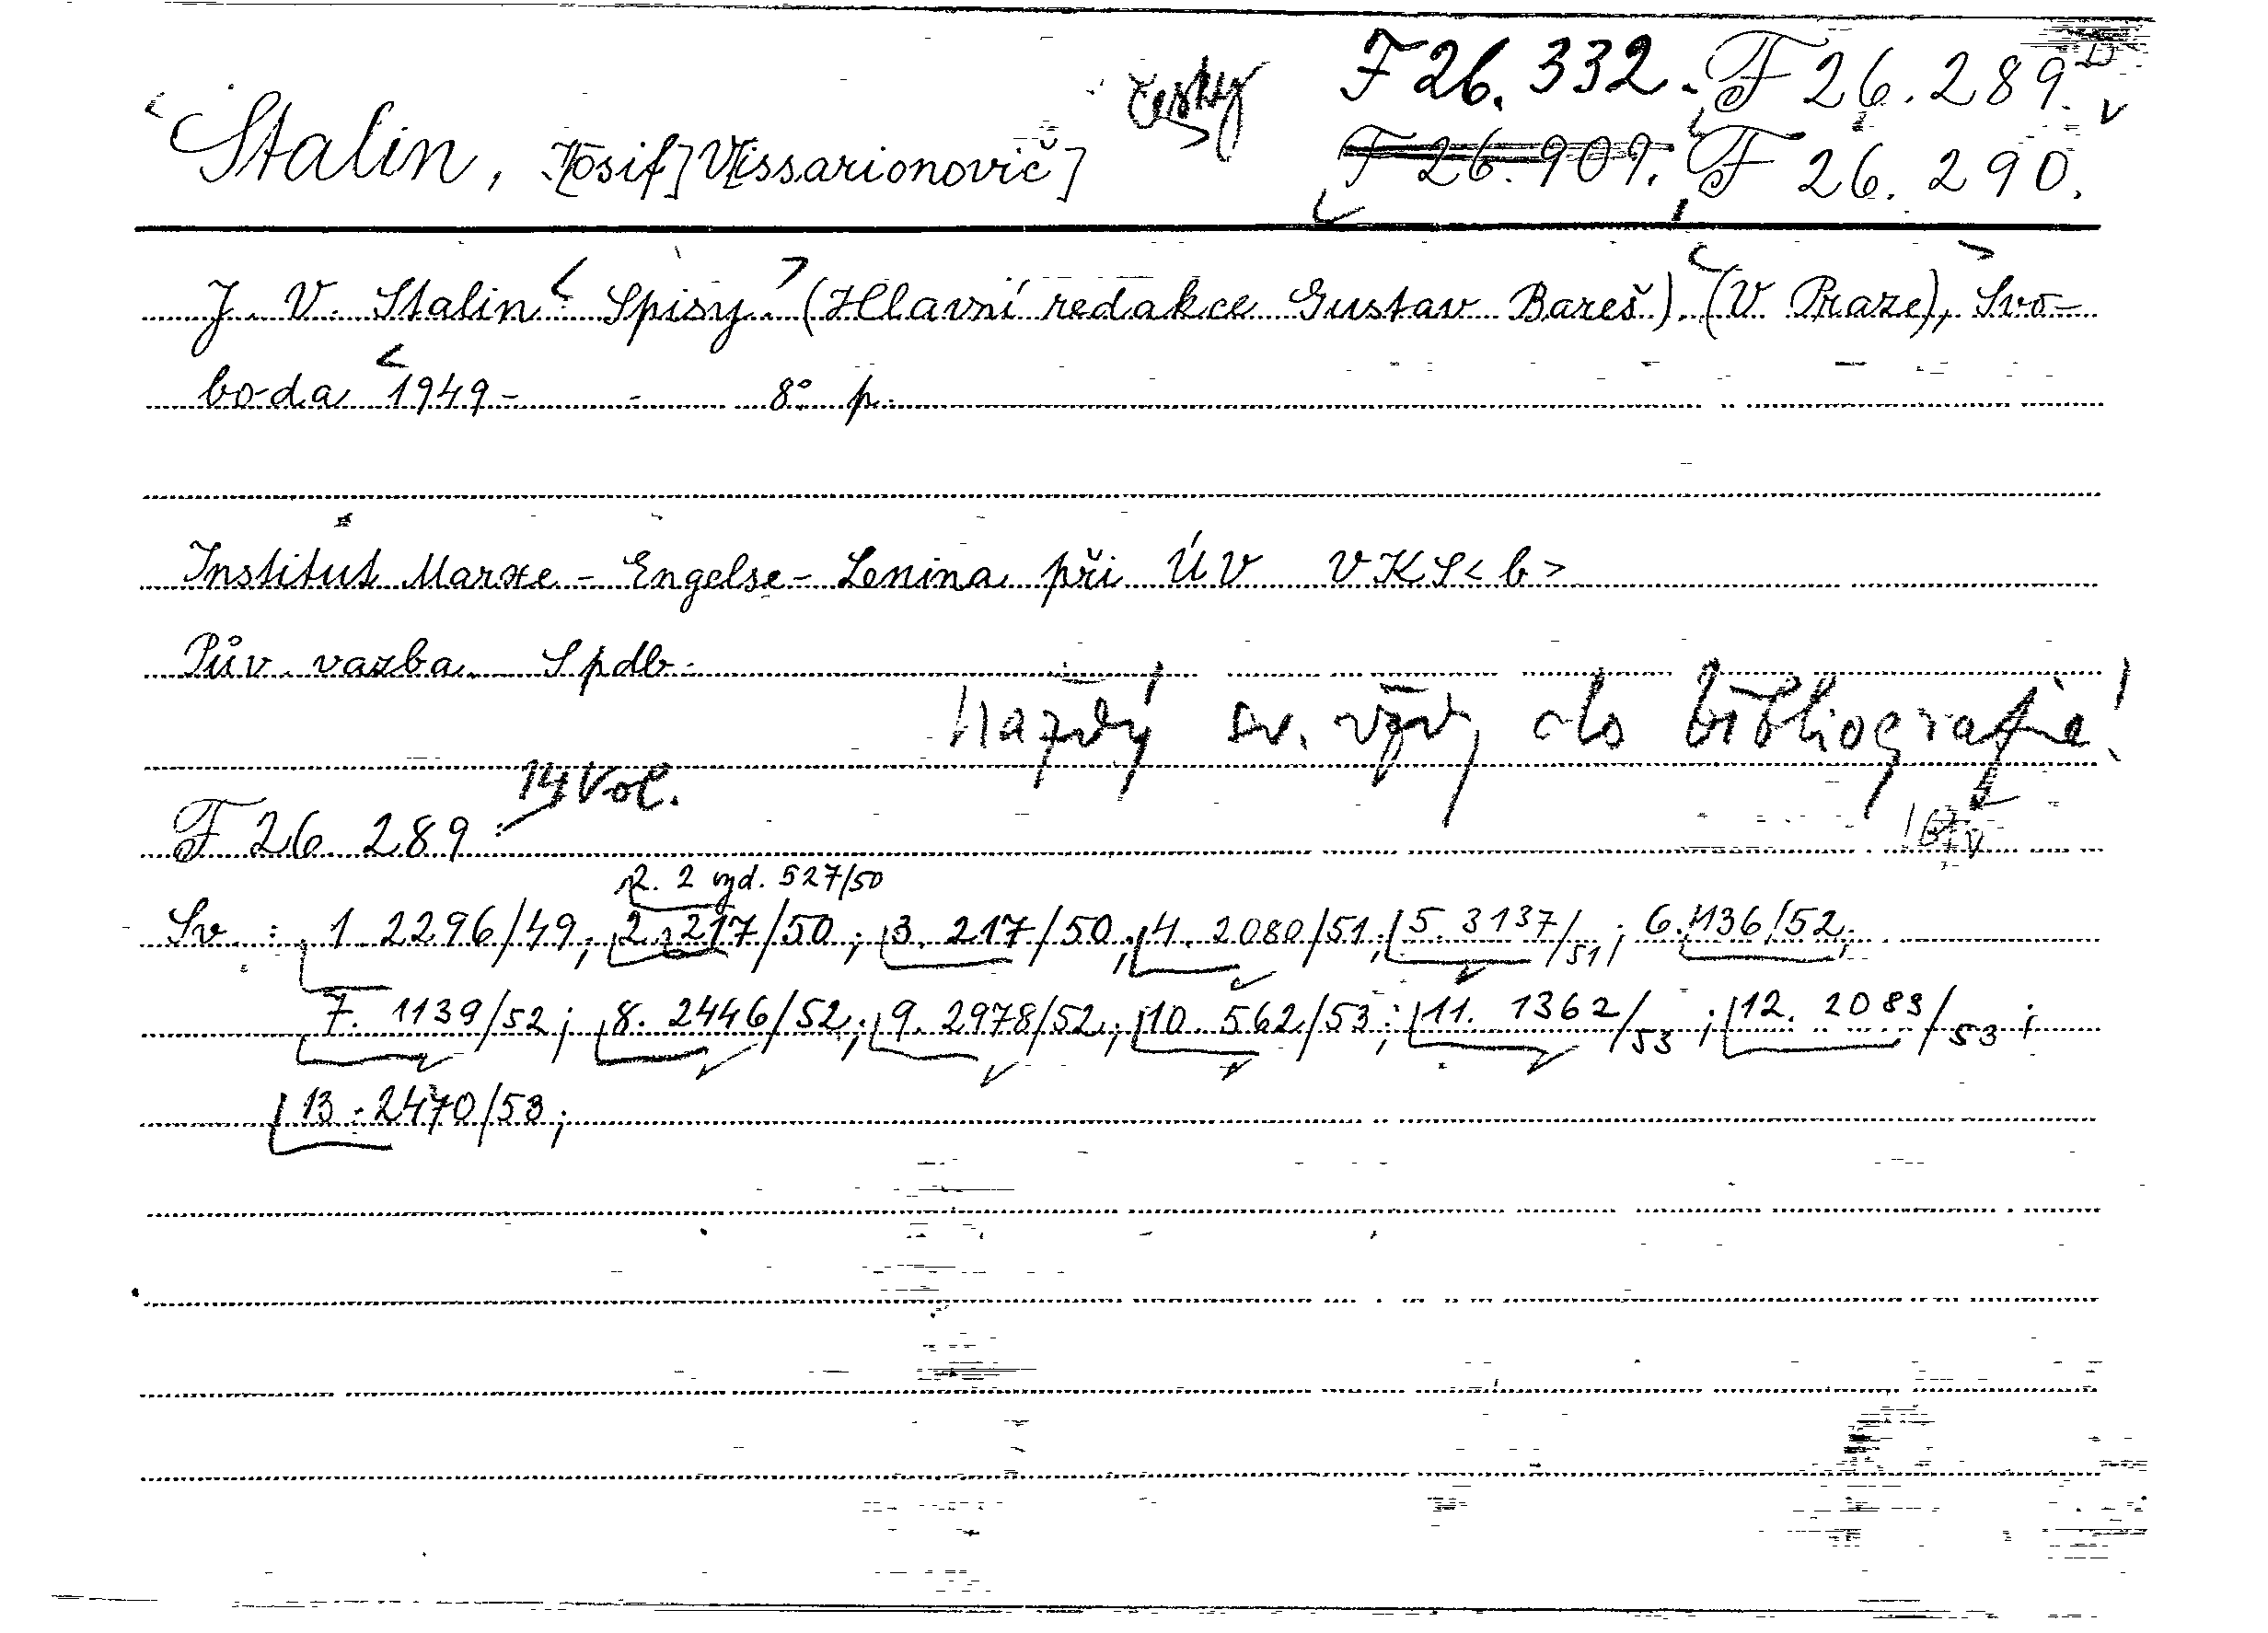 česky F 26.332. F 26.289.
Stalin, J[osif] V[issarionovič] F 26.909. F 26.290.
J. V. Stalin: Spisy. (Hlavní redakce Gustav Bareš). (V Praze), Svo-
boda 1949- - 8° p.
Institut Marxe - Engelse - Lenina při ÚV VKS<b>
Pův. vazba. Spdb.
Každý sv. vždy do bibliografie!
14 Vol.
F 26.289
2. 2 vyd. 527/50
Sv.: 1. 2296/49; 2. 217/50; 3. 217/50; 4. 2080/51; 5. 3137/51; 6. 1136/52;
7. 1139/52; 8. 2446/52; 9. 2978/52; 10. 562/53; 11. 1362/53; 12. 2083/53;
13. 2470/53;